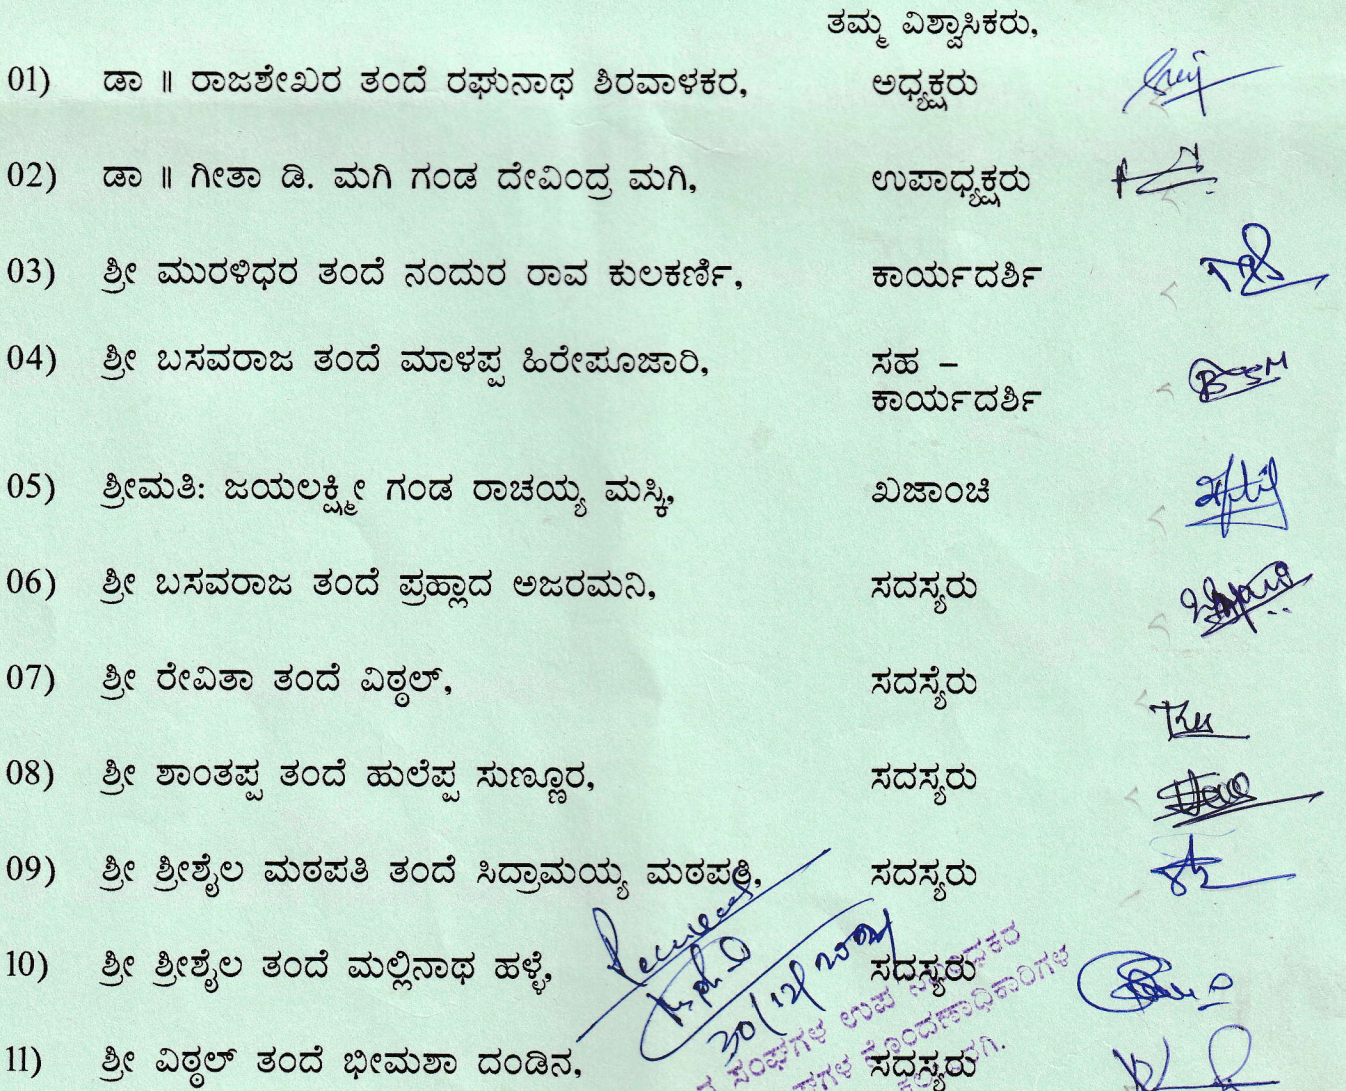 ತಮ್ಮ ವಿಶ್ವಾಸಿಕರು,
01) ಡಾ ॥ ರಾಜಶೇಖರ ತಂದೆ ರಘುನಾಥ ಶಿರವಾಳಕರ, ಅಧ್ಯಕ್ಷರು
02) ಡಾ ॥ ಗೀತಾ ಡಿ. ಮಗಿ ಗಂಡ ದೇವಿಂದ್ರ ಮಗಿ, ಉಪಾಧ್ಯಕ್ಷರು
03) ಶ್ರೀ ಮುರಳಿಧರ ತಂದೆ ನಂದುರ ರಾವ ಕುಲಕರ್ಣಿ, ಕಾರ್ಯದರ್ಶಿ
04) ಶ್ರೀ ಬಸವರಾಜ ತಂದೆ ಮಾಳಪ್ಪ ಹಿರೇಪೂಜಾರಿ, ಸಹ –
ಕಾರ್ಯದರ್ಶಿ
05) ಶ್ರೀಮತಿ: ಜಯಲಕ್ಷ್ಮೀ ಗಂಡ ರಾಚಯ್ಯ ಮಸ್ಕಿ, ಖಜಾಂಚಿ
06) ಶ್ರೀ ಬಸವರಾಜ ತಂದೆ ಪ್ರಹ್ಲಾದ ಅಜರಮನಿ, ಸದಸ್ಯರು
07) ಶ್ರೀ ರೇವಿತಾ ತಂದೆ ವಿಠ್ಠಲ್, ಸದಸ್ಯೆರು
08) ಶ್ರೀ ಶಾಂತಪ್ಪ ತಂದೆ ಹುಲೆಪ್ಪ ಸುಣ್ಣೂರ, ಸದಸ್ಯರು
09) ಶ್ರೀ ಶ್ರೀಶೈಲ ಮಠಪತಿ ತಂದೆ ಸಿದ್ರಾಮಯ್ಯ ಮಠಪತಿ, ಸದಸ್ಯರು
10) ಶ್ರೀ ಶ್ರೀಶೈಲ ತಂದೆ ಮಲ್ಲಿನಾಥ ಹಳ್ಳೆ, ಸದಸ್ಯರು
30/12/
ಸಂಘಗಳ ಉಪ
ನೊಂದಣಾಧಿಕಾರಿಗಳ
11) ಶ್ರೀ ವಿಠ್ಠಲ್ ತಂದೆ ಭೀಮಶಾ ದಂಡಿನ, ಸದಸ್ಯರು